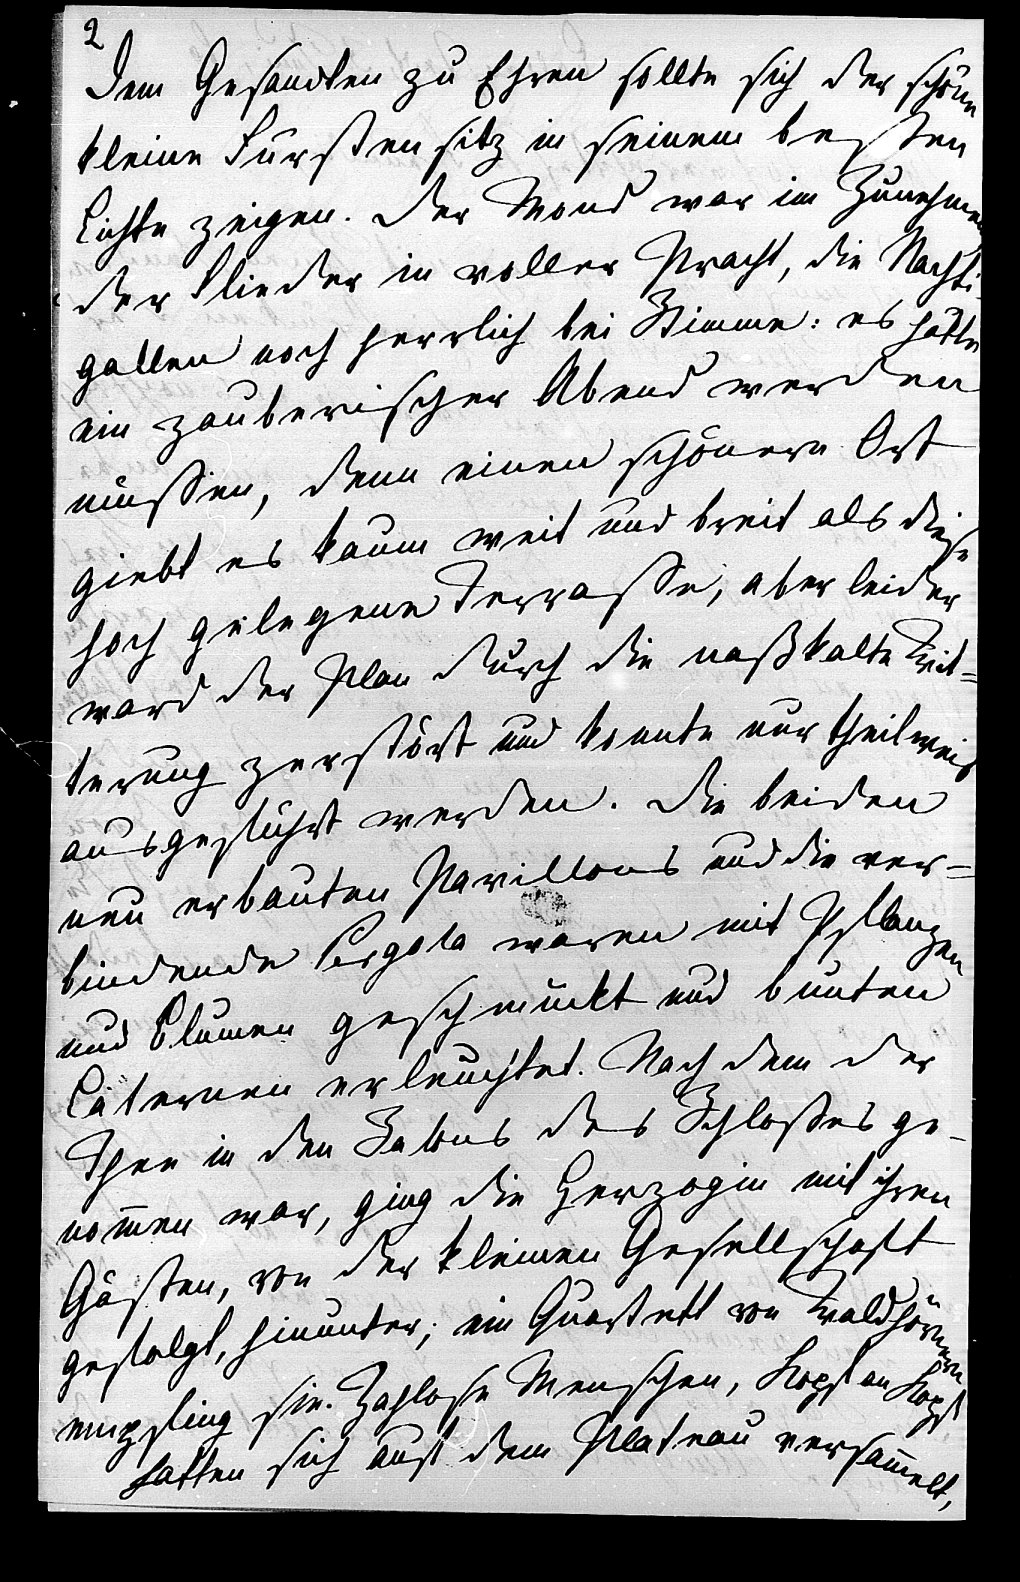 2
Dem Gesandten zu Ehren sollte sich der schöne
kleine Fürstensitz in seinem besten
Lichte zeigen. Der Mond war im Zunehmen
der Flieder in voller Pracht, die Nachti-
gallen noch herrlich bei Stimme: es hätte
ein zauberischer Abend werden
müssen, denn einen schönern Ort
giebt es kaum weit und breit als diese
hoch gelegene Terrasse, aber leider
ward der Plan durch die naßkalte Wit=
terung zerstört und konnte nur theilweis
ausgeführt werden. Die beiden
neu erbauten Pavillons und die ver=
bindende Pergola waren mit Pflanzen
und Blumen geschmückt und bunten
Laternen erleuchtet. Nach dem der
Thee in den Salons des Schloßes ge-
nom̅en war, ging die Herzogin mit ihren
Gästen, von der kleinen Gesellschaft
gefolgt, hinunter; ein Quartett von Waldhörnern
empfing sie. Zahlose Menschen, Kopf an Kopf
hatten sich auf dem Plateau versam̅elt,